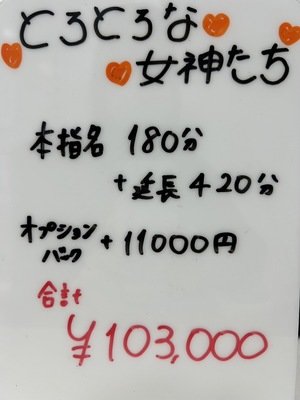 とろとろな
女神たち
本指名 180分
+延長420分
オプション
バック +11000円
合計
¥103,000